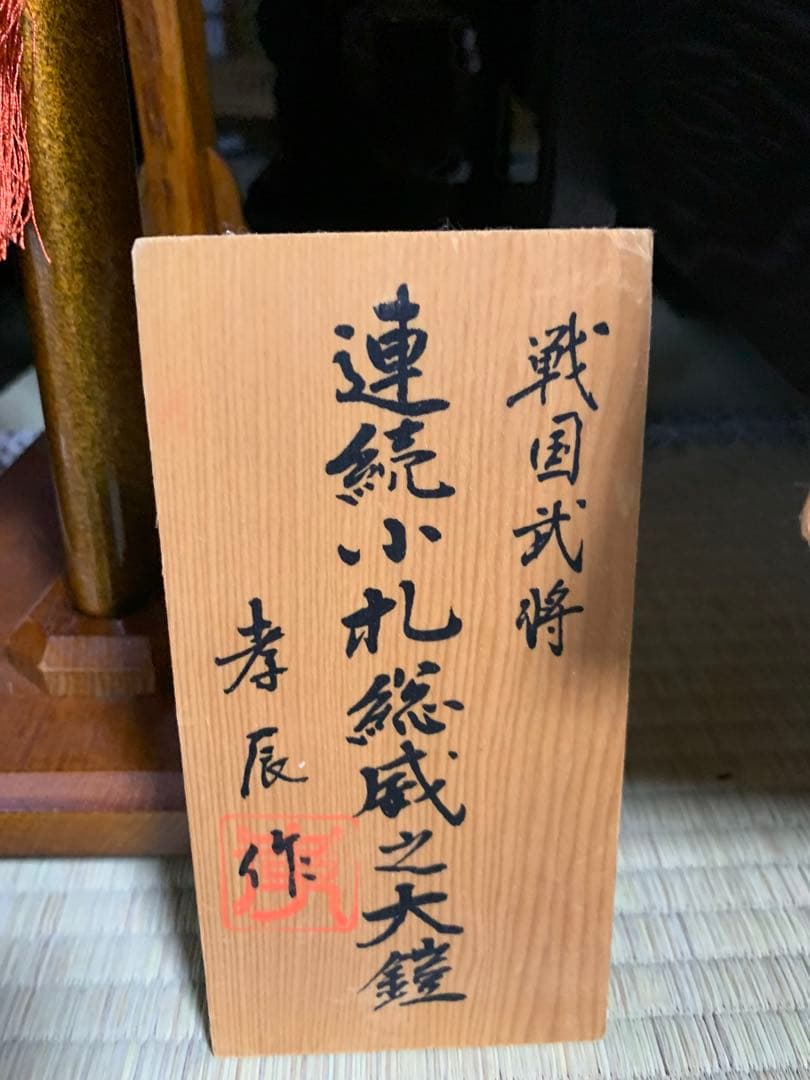 戦国武将
連続小札総威之大鎧
孝辰作